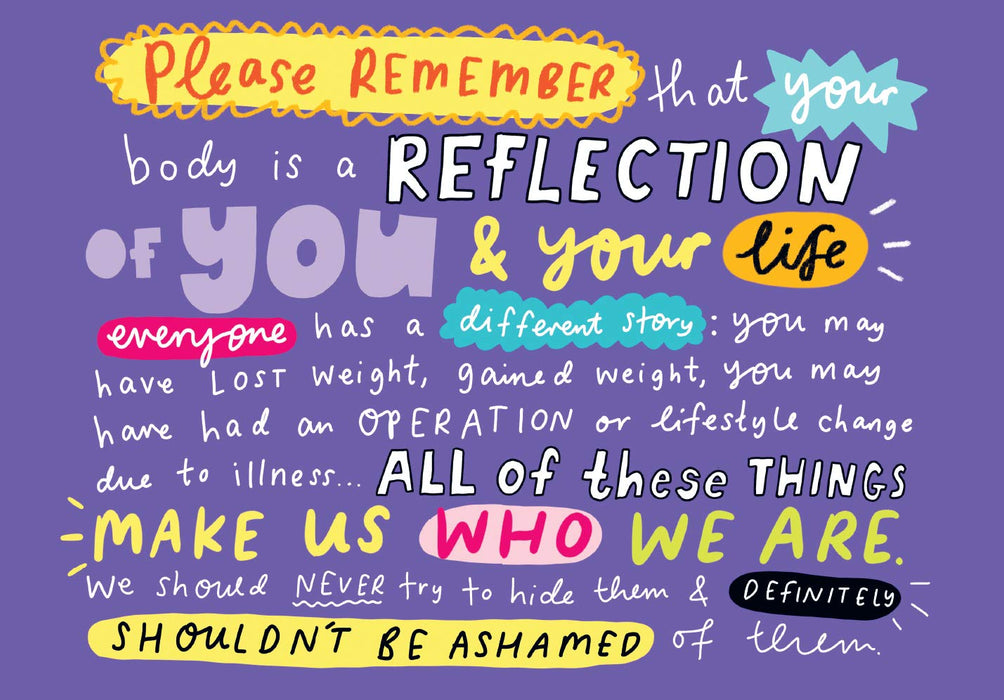 Please REMEMBER that your
body is a REFLECTION
OF YOU & your life
everyone has a different story: you may
have LOST weight, gained weight, you may
have had an OPERATION or lifestyle change
due to illness... ALL of these THINGS
MAKE US WHO WE ARE.
We should NEVER try to hide them & DEFINITELY
SHOULDN'T BE ASHAMED of them.